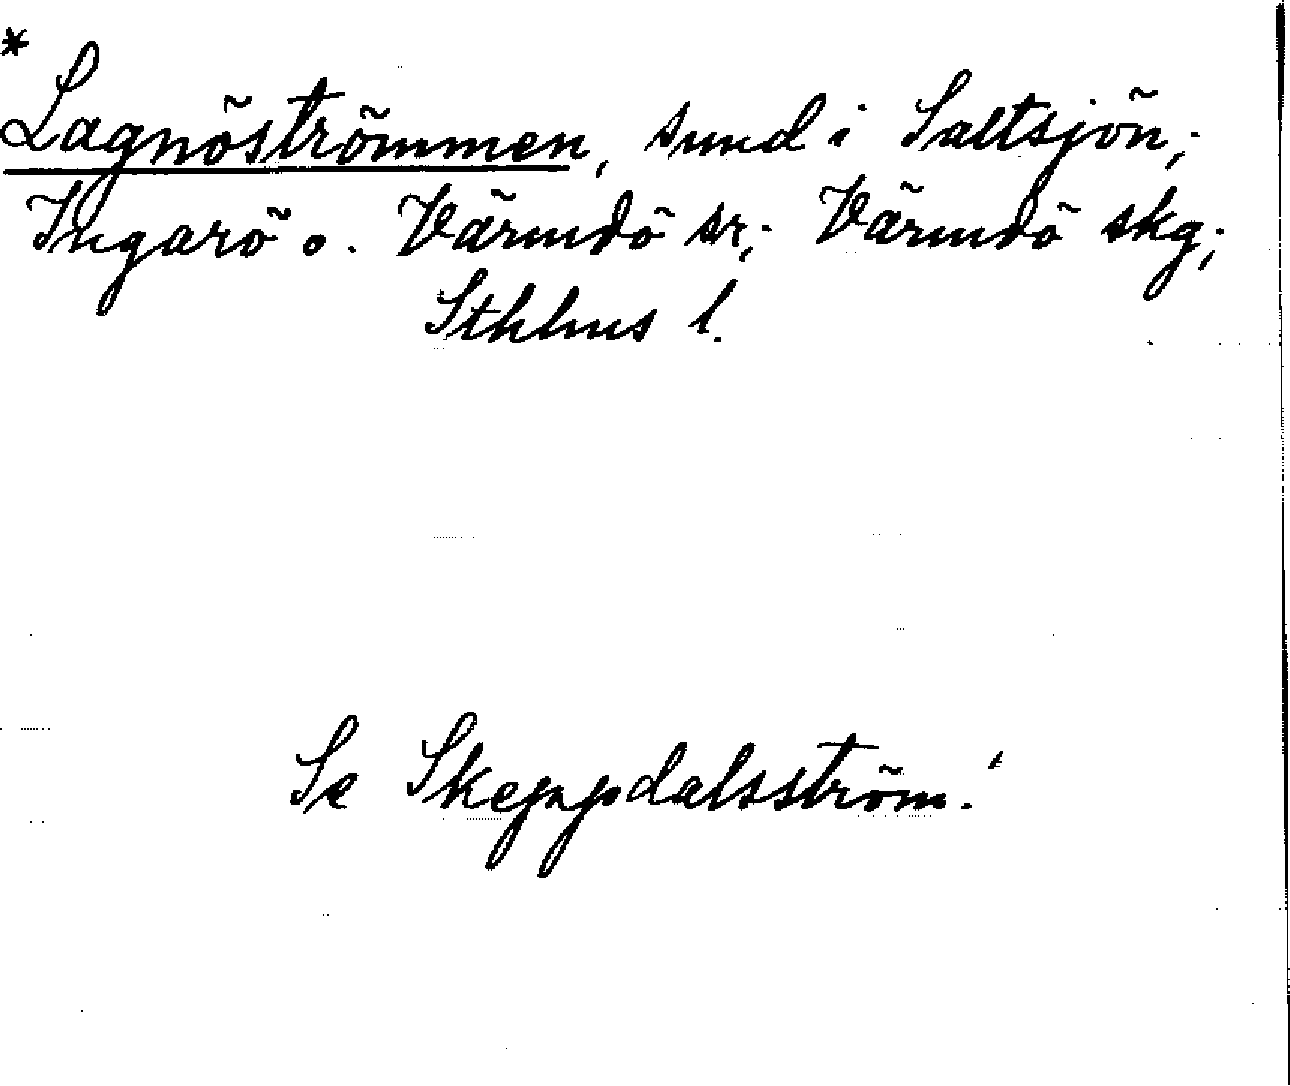 *
Lagnöströmmen, sund i Saltsjön;
Ingarö o. Värmdö sr; Värmdö skg;
Sthlms l.
Se Skeppdalsström!